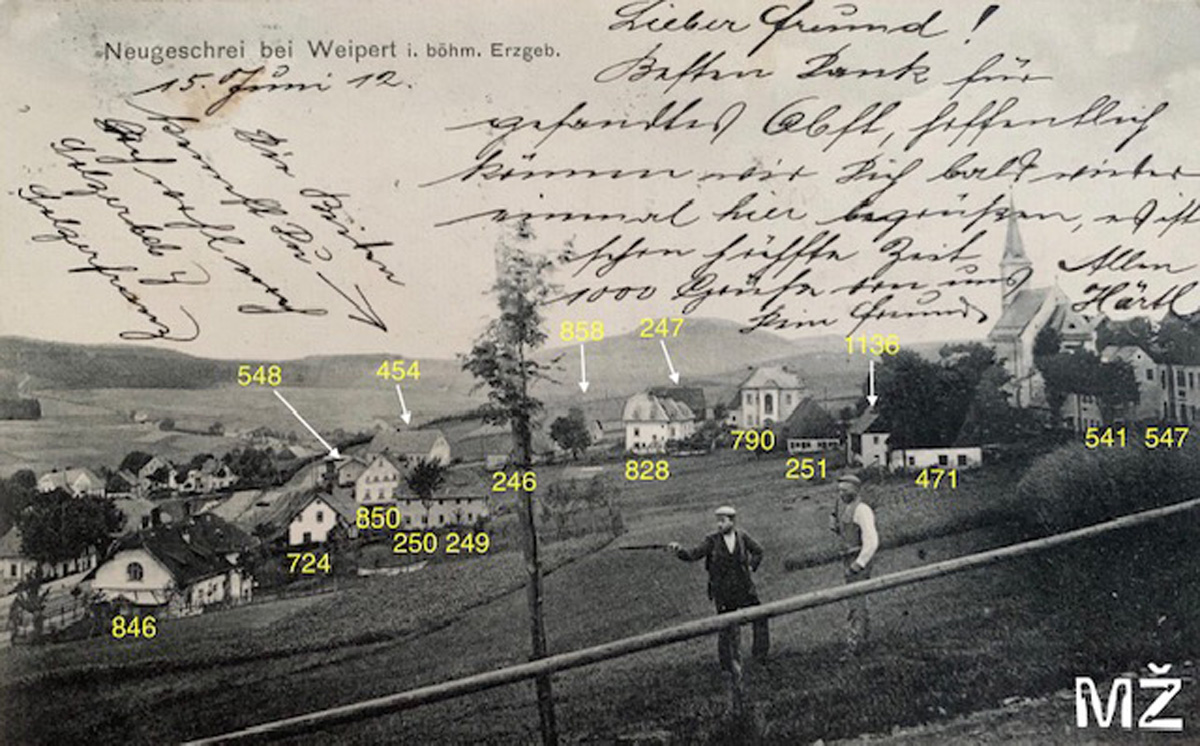 Neugeschrei bei Weipert i. böhm. Erzgeb.
15. Juni 12.
Lieber Freund!
Besten Dank für
gesandtes Obst, hoffentlich
können wir Dich bald wieder
einmal hier begrüßen, es ist
schon höchste Zeit
1000 Grüße von uns Allen
Dein Freund Härtl
Die Beiden
kennst Du
doch wohl noch
858
247
1136
548
454
790
541 547
246
828
251
471
850
250 249
724
846
MŽ